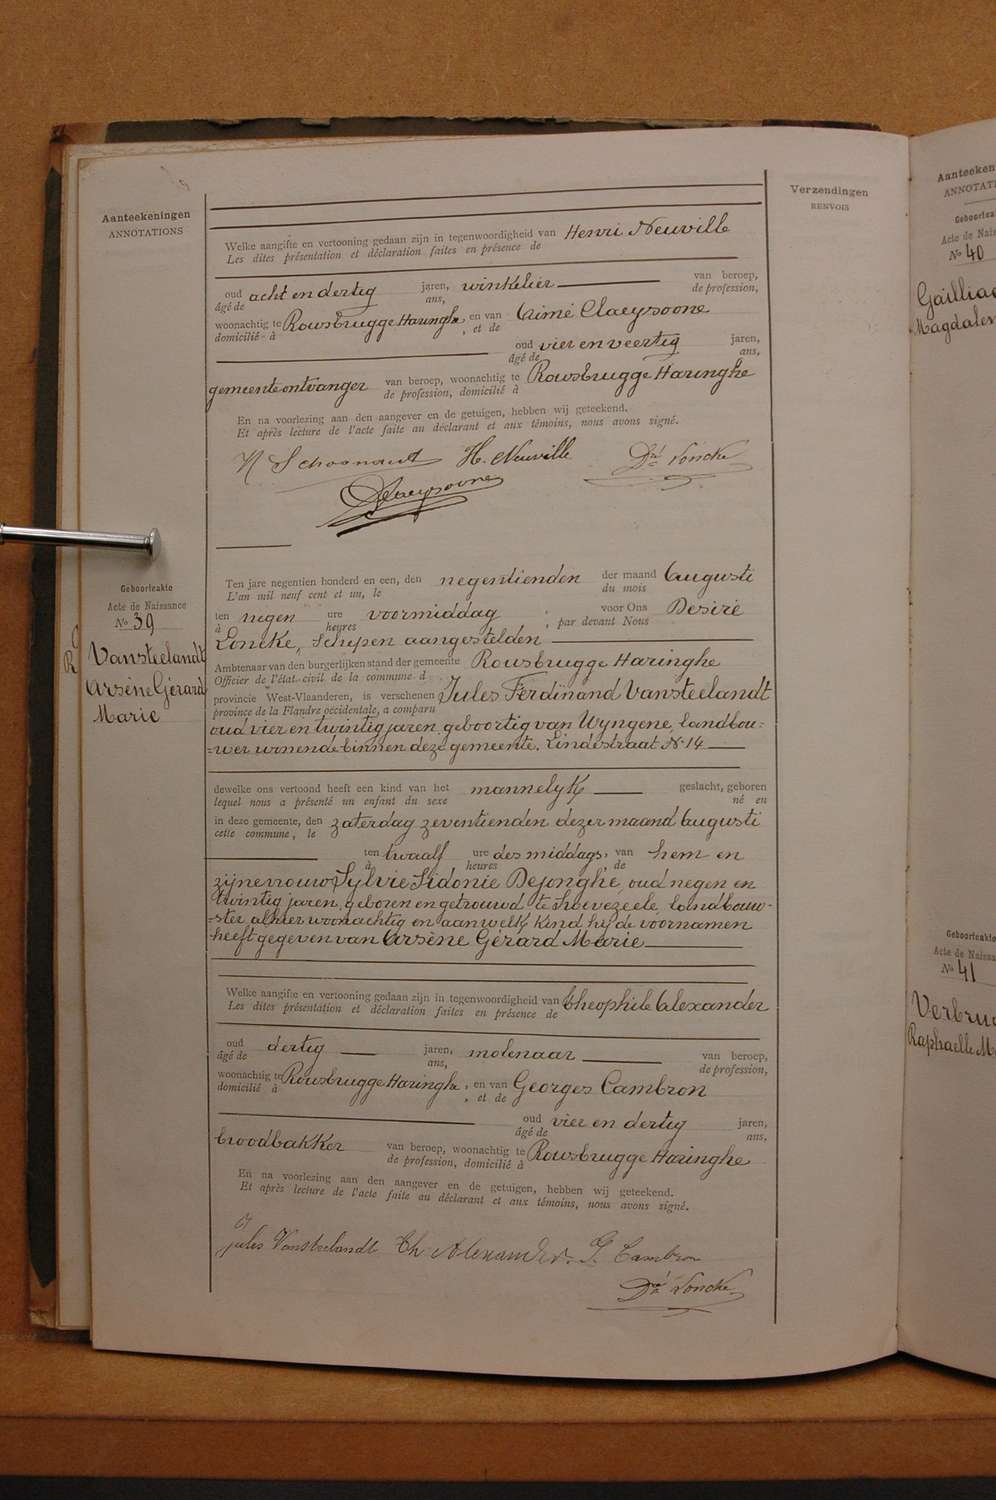 Aanteekeningen
ANNOTATIONS
Verzendingen
RENVOIS
Welke aangifte en vertooning gedaan zijn in tegenwoordigheid van Henri Neuville
Les dites présentation et déclaration faites en présence de
oud acht en dertig jaren, winkelier van beroep,
âgé de ans, de profession,
woonachtig te Rousbrugge Haringhe, en van Aimé Claeysoone
domicilié à , et de
oud vier en veertig jaren,
âgé de ans,
gemeenteontvanger van beroep, woonachtig te Rousbrugge Haringhe
de profession, domicilié à
En na voorlezing aan den aangever en de getuigen, hebben wij geteekend.
Et après lecture de l'acte faite au déclarant et aux témoins, nous avons signé.
H. Neuville Dré Loncke
Claeysoone
Geboorteakte
Acte de Naissance
No 39
Vansteelandt
Arsène Gérard
Marie
Ten jare negentien honderd en een, den negentienden der maand Augusti
L'an mil neuf cent et un, le du mois
ten negen ure voormiddag ; voor Ons Désiré
à heures , par devant Nous
Loncke, Schepen aangestelden
Ambtenaar van den burgerlijken stand der gemeente Rousbrugge Haringhe
Officier de l'état civil de la commune d
provincie West-Vlaanderen, is verschenen Jules Ferdinand Vansteelandt
province de la Flandre occidentale, a comparu
oud vier en twintig jaren, geboortig van Wyngene, landbou-
-wer wonende binnen deze gemeente. Lindestraat No 14
dewelke ons vertoond heeft een kind van het mannelyk geslacht, geboren
lequel nous a présenté un enfant du sexe né en
in deze gemeente, den zaterdag zeventienden dezer maand Augusti
cette commune, le
ten twaalf ure des middags, van hem en
à heures , de
zijne vrouw Sylvie Sidonie Dejonghe, oud negen en
twintig jaren, geboren en getrouwd te Hoevezeele, Landbouw-
-ster alhier woonachtig en aan welk kind hij de voornamen
heeft gegeven van Arsène Gérard Marie
Welke aangifte en vertooning gedaan zijn in tegenwoordigheid van Theophile Alexander
Les dites présentation et déclaration faites en présence de
oud dertig jaren, molenaar van beroep,
âgé de ans, de profession,
woonachtig te Rousbrugge Haringhe, en van Georges Cambron
domicilié à , et de
oud vier en dertig jaren,
âgé de ans,
broodbakker van beroep, woonachtig te Rousbrugge Haringhe
de profession, domicilié à
En na voorlezing aan den aangever en de getuigen, hebben wij geteekend.
Et après lecture de l'acte faite au déclarant et aux témoins, nous avons signé.
Jules Vansteelandt Th Alexander. G. Cambron
Dré Loncke
Aanteeken
ANNOTATI
Geboortea
Acte de Nais
No 40
Gailliae
Magdalen
Geboorteakte
Acte de Naissa
No 41
Verbru
Raphaelle M